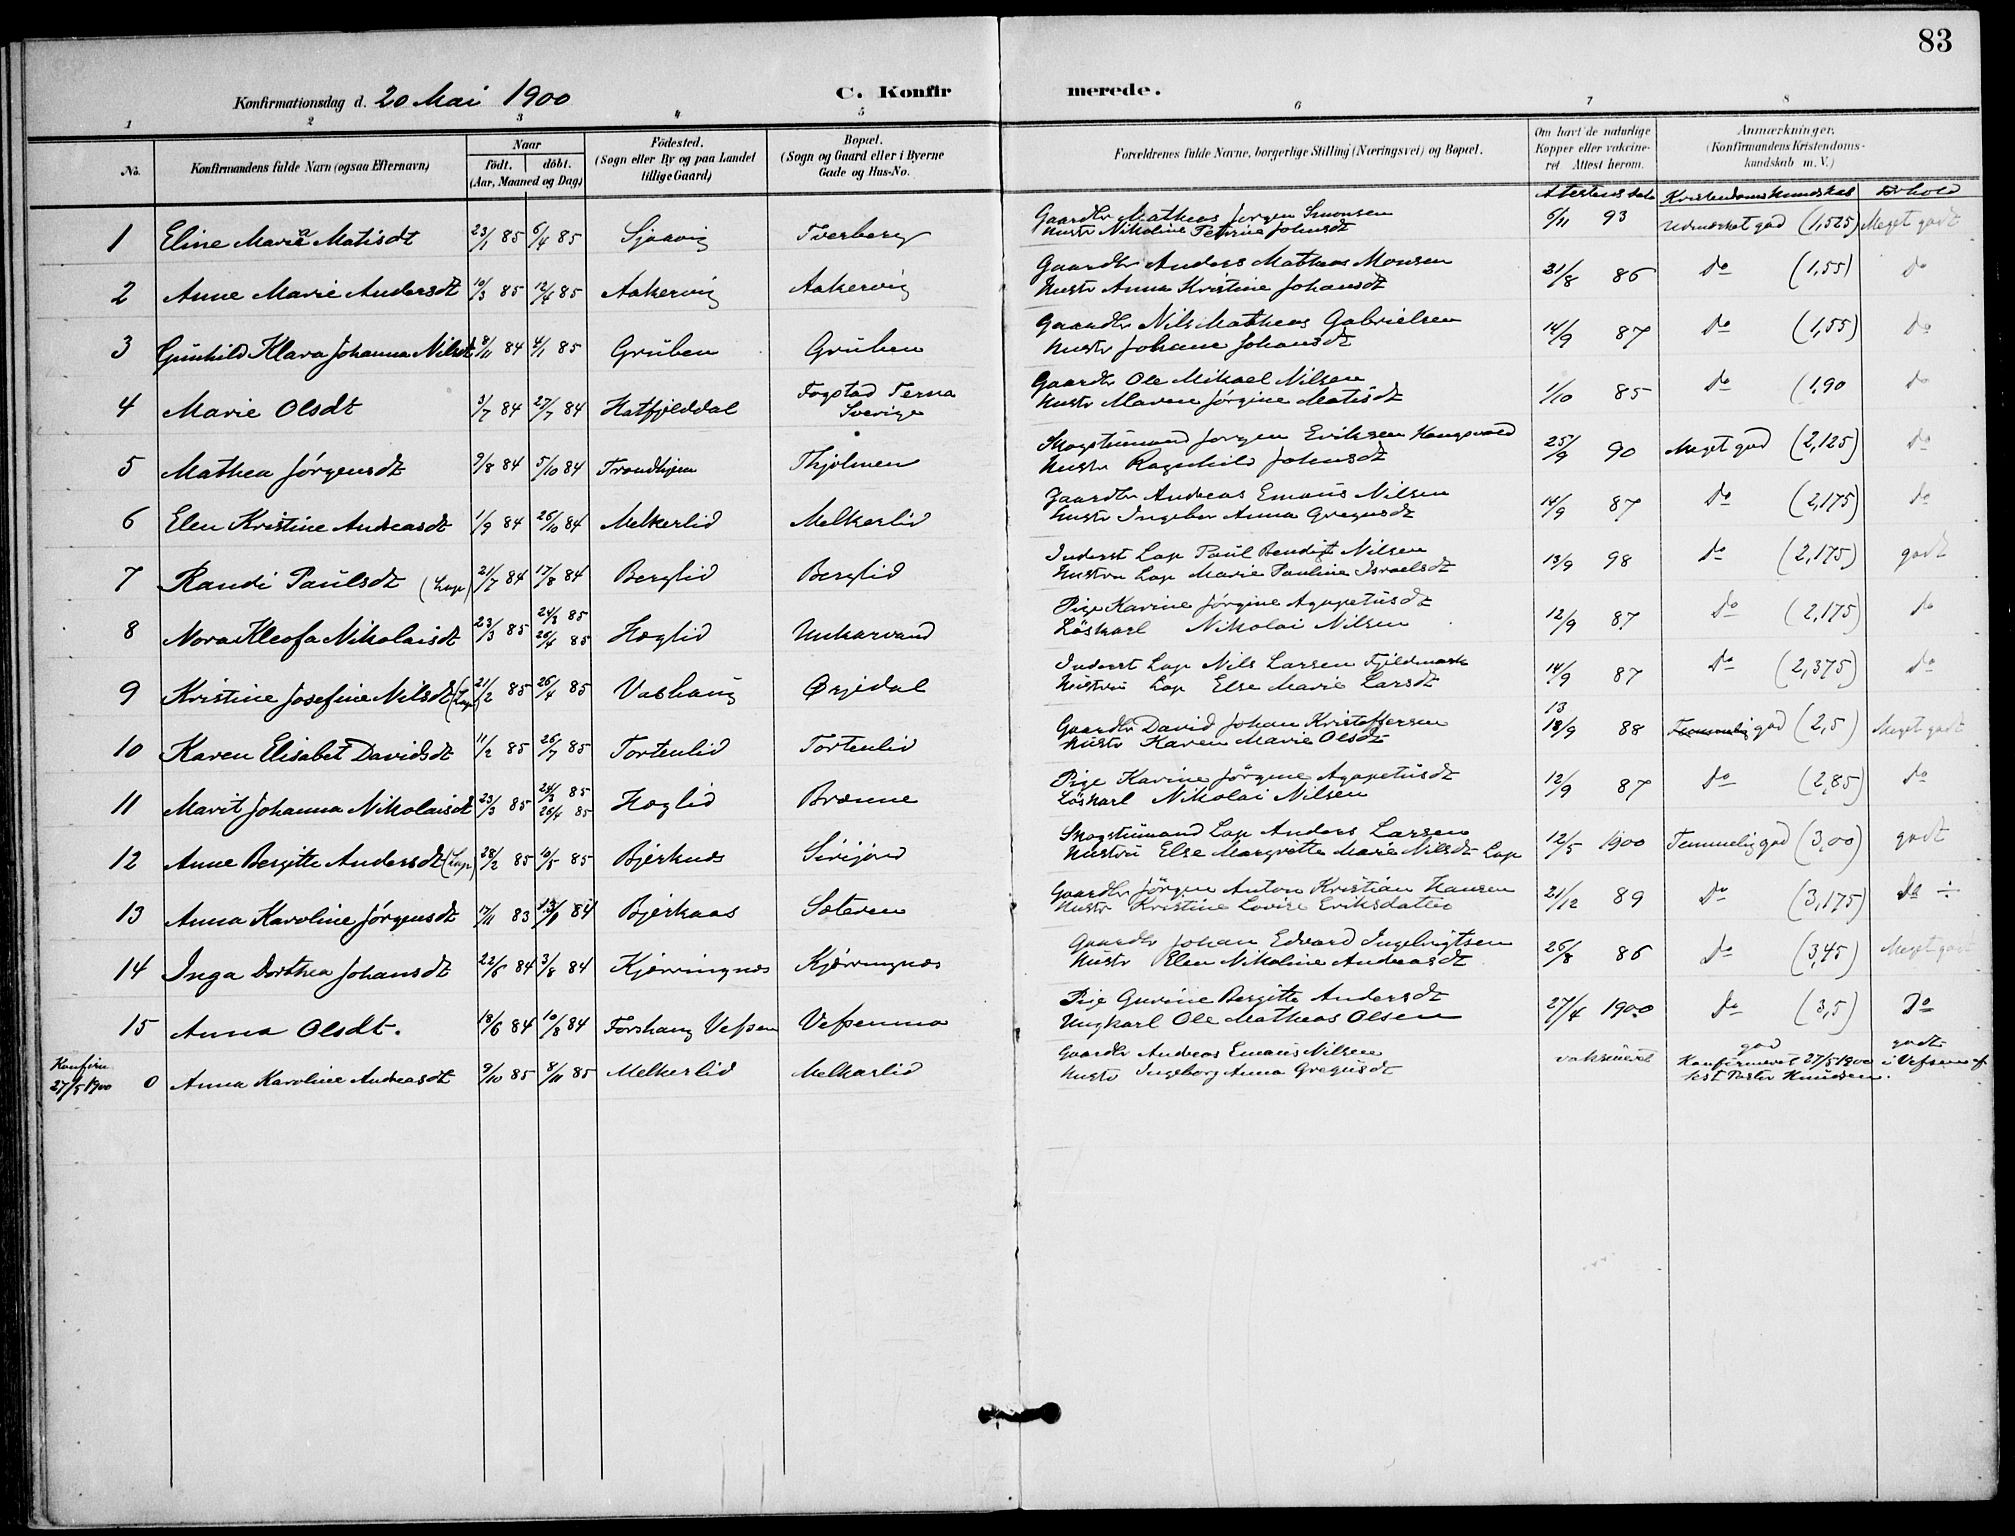 83
Konfirmationsdag d. 20 Mai 1900
C. Konfir merede.
1 2 3 4 5 6 7 8
No. Konfirmandens fulde Navn (ogsaa Efternavn) Naar født. døbt. (Aar, Maaned og Dag) Fødested. (Sogn eller By og paa Landet tillige Gaard) Bopæl. (Sogn og Gaard eller i Byerne Gade og Hus-No. Forældrenes fulde Navne, borgerlige Stilling (Næringsvei) og Bopæl. Om havt de naturlige Kopper eller vakcineret Attest herom. Anmærkninger. (Konfirmandens Kristendomskundskab m. V.)
Attestens dato Kristendomskundskab Forhold
1 Eline Maria Matisdt 23/1 85 6/4 85 Sjaavig Tverberg Gaardbr Matheas Jørgen Simonsen 6/11 93 Udmærket god (1,525) Meget godt
Hustr Nikoline Petrine Johnsdt
2 Anne Marie Andersdt 10/3 85 12/4 85 Aakervig Aakervig Gaardbr Anders Matheas Monsen 31/8 86 do (1,55) do
Hustr Anna Kristine Johansdt
3 Gunhild Klara Johanna Nilsdt 8/11 84 4/1 85 Gruben Gruben Gaardbr Nils Matheas Gabrielsen 14/9 87 do (1,55) do
Hustr Johane Johansdt
4 Marie Olsdt 3/7 84 27/7 84 Hatfjelddal Fogstad Terna Sverige Gaardbr Ole Mikael Nilsen 1/10 85 do (1,90 do
Hustr Maren Jørgine Matisdt
5 Mathea Jørgensdt 9/8 84 5/10 84 Trondhjem Thjolmen Skogstuemand Jørgen Eriksen Kongsvold 25/9 90 Meget god (2,125) do
Hustr Ragnhild Johnsdt
6 Elen Kristine Andreasdt 1/9 84 26/10 84 Melkerlid Melkerlid Gaardbr Andreas Emaus Nilsen 14/9 87 do (2,175) do
Hustr Ingebor Anna Gregusdt
7 Randi Paulsdt (Lap) 21/7 84 17/8 84 Berglid Berglid Inderst Lap Paul Bendigt Nilsen 13/9 98 do (2,175) godt
Hustru Lap Marie Pauline Israelsdt
8 Nora Kleofa Nikolaisdt 23/3 85 24/3 85 26/4 85 Hæglid Unkarvand Pige Karine Jørgine Agapetusdt 12/9 87 do (2,175) do
Løskarl Nikolai Nilsen
9 Kristine Josefine Nilsdt (Lap) 21/2 85 26/4 85 Vashaug Ørjedal Inderst Lap Nils Larsen Fjeldmark 14/9 87 do (2,375) do
Hustru Lap Else Marie Larsdt
10 Karen Elisabet Davidsdt 11/2 85 26/7 85 Tortenlid Tortenlid Gaardbr David Johan Kristoffersen 13 18/9 88 Temmelig god (2,5) Meget godt
Hustr Karen Marie Olsdt
11 Marit Johanna Nikolaisdt 23/3 85 24/3 85 26/4 85 Hæglid Brænne Pige Karine Jørgine Agapetusdt 12/9 87 do (2,85) do
Løskarl Nikolai Nilsen
12 Anne Bergitte Andersdt (Lap) 28/2 85 10/5 85 Bjerknæs Sirijord Skogstuemand Lap Anders Larsen 12/5 1900 Temmelig god (3,00) godt
Hustru Else Margrethe Marie Nilsdt Lap
13 Anna Karoline Jørgensdt 17/11 83 13/1 84 Bjerkaas Sæteren Gaardbr Jørgen Anton Kristian Hansen 21/12 89 do (3,175) do ÷
Hustr Kristine Lovise Eriksdatter
14 Inga Dorthea Johansdt 22/6 84 3/8 84 Kjærringnes Kjærringnes Gaardbr Johan Edvard Ingebrigtsen 26/8 86 do (3,45) Meget godt
Hustr Elen Nikoline Andreasdt
15 Anna Olsdt. 18/6 84 10/8 84 Forshaug Vefsen Vefsenmo Pige Gurine Bergitte Andersdt 27/4 1900 do (3,5) Do
Ungkarl Ole Matheas Olsen
Konfirm 27/5 1900 0 Anna Karoline Andreasdt 9/10 85 8/11 85 Melkerlid Melkerlid Gaardbr Andreas Emaus Nilsen vaksineret god godt
Hustr Ingeborg Anna Gregusdt Konfirmeret 27/5 1900 i Vefsen af
kst Pastor Knudsen.